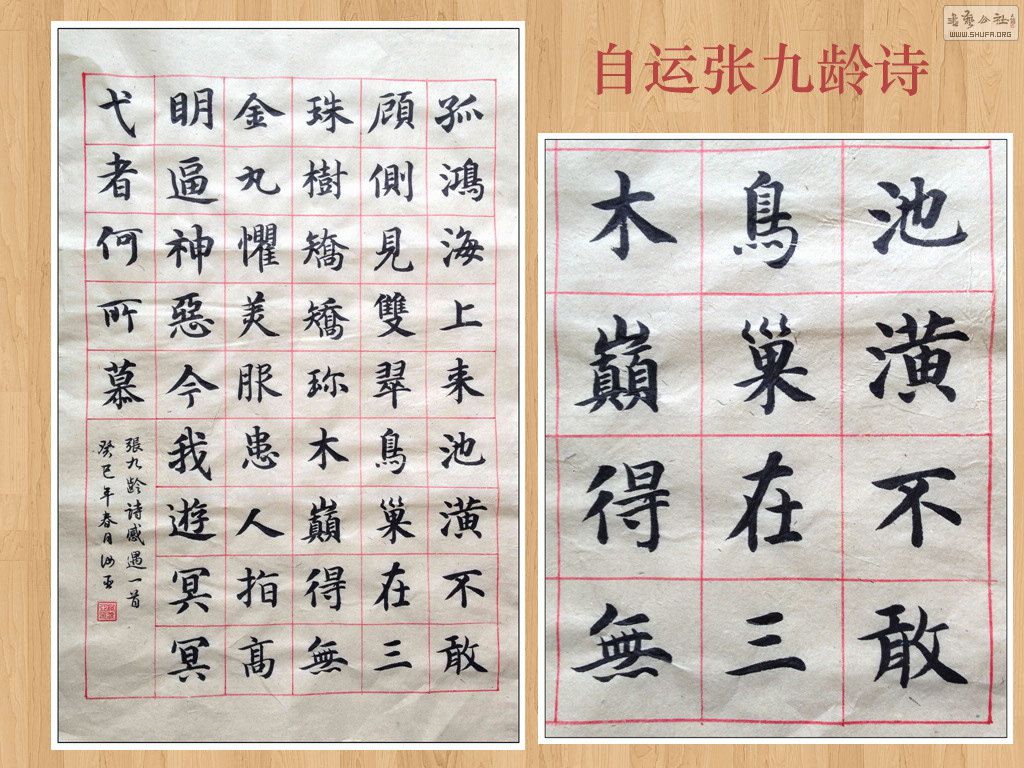 自运张九龄诗
書藝公社
WWW.SHUFA.ORG
孤鴻海上来池潢不敢
顧側見雙翠鳥巢在三
珠樹矯矯珎木巔得無
金丸懼美服患人指高
明逼神惡今我遊冥冥
弋者何所慕
張九龄诗感遇一首
癸巳年春月
池潢不敢
鳥巢在三
木巔得無